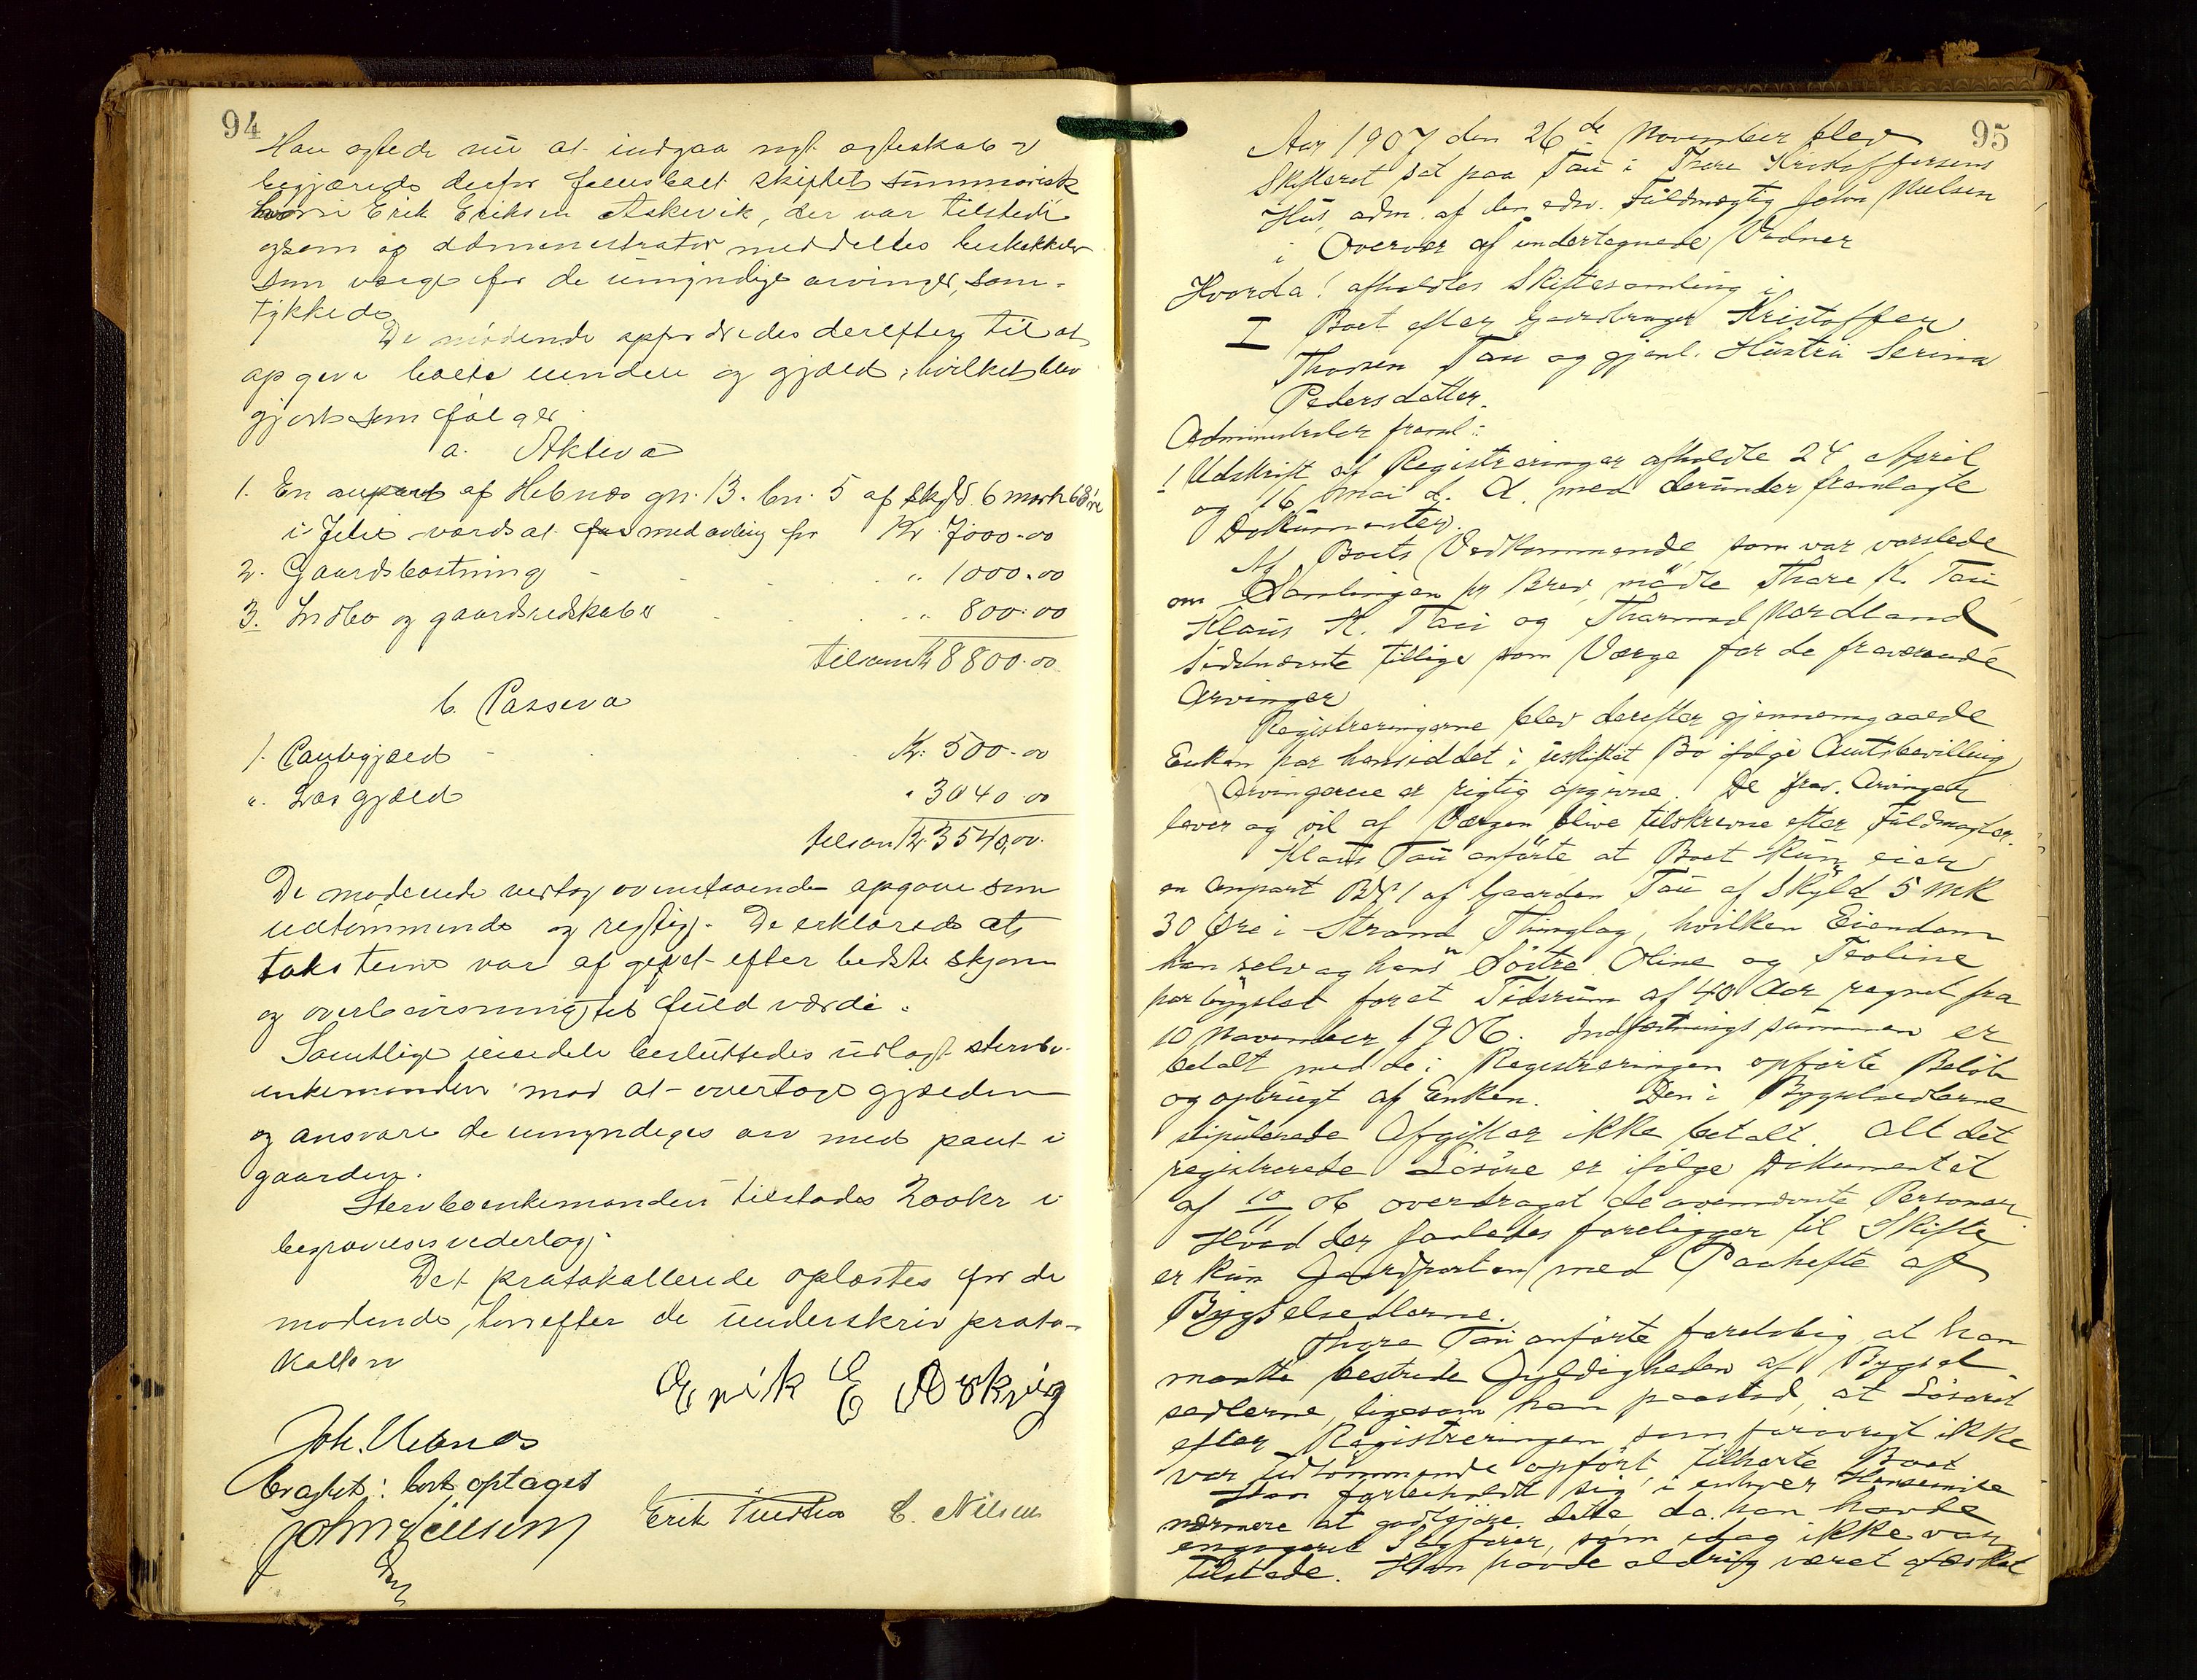 94
Han agtede nu at indgaa nyt ægteskab &
begjærede derfor fællesboet skiftet summarisk
hvori Erik Eriksen Askevik, der var tilstede
og som og administrator meddeltes beskikkelse
som værge for de umyndige arvinger, sam-
tykkede
De mødende opfordredes derefter til at
opgive boets eiendele og gjæld, hvilket blev
gjort som følger
a. Aktiva
1. En anpart af Hebnæs gn. 13. bn. 5 af skyld 6 mark 68 øre
i Jelse værdsat med avling for Kr. 7000.00
2. Gaardsbesetning " 1000.00
3. Indbo og gaardsredskaber " 800.00
tilsam Kr 8800.00
b. Passiva
1. Pantegjæld Kr. 500.00
". Løsgjæld " 3040.00
tilsam Kr. 3540,00.
De mødende vedtog ovenstaaende opgave som
udtømmende og rigtig. De erklærede at
taksterne var afgivet efter bedste skjøn
og overbevisning til fuld værdi.
Samtlige eiendele besluttedes udlagt stervbo-
enkemanden mod at overtage gjælden
og ansvare de umyndiges arv med pant i
gaarden.
Stervboenkemanden tilstodes 200 kr i
begravelsesvederlag.
Det protokollerede oplæstes for de
mødende, hvorefter de underskrev proto-
kollen
Erik E Askvig
Joh. Hebnæs
boet optages
John Nielsen
Erik C. Nilsen
95
Aar 1907 den 26de November blev
Skifteret sat paa Tau i Thore Kristoffersens
Hus, adm. af den edsv. Fuldmægtig John Nielsen
i Overvær af undertegnede Vidner
Hvorda! afholdtes Skiftesamling i
I Boet efter Gaardbruger Kristoffer
Thorsen Tau og gjenl. Hustru Serina
Pedersdatter.
Administrator freml:
1 Udskrift af Registreringer afholdte 24 April
og 16 Mai d. A. med derunder fremlagte
Dokumenter.
Af Boets Vedkommende, som var varslede
om Samlingen pr Brev, mødte Thore K. Tau
Klaus K. Tau og Thormod Nordland
sidstnævnte tillige som Værge for de fraværende
Arvinger
Registreringerne blev derefter gjennemgaaede
Enken har hensiddet i uskiftet Bo ifølge Amtsbevilling
Arvingerne er rigtig opgivne. De frav. Arvinger
lever og vil af Værgen blive tilskrevne efter Fuldmagter.
Klaus Tau anførte at Boet kun eier
en Anpart BN 1 af Gaarden Tau af Skyld 5 Mk
30 Øre i Strand Thinglag, hvilken Eiendom
han selv og hans Søstre Oline og Teoline
har bygslet for et Tidsrum af 40 Aar regnet fra
10 November 1906. Indfæstningssummen er
betalt med de i Registreringen opførte Beløb
og opbrugt af Enken. Den i Bygselsedlerne
stipulerede Afgift er ikke betalt. Alt det
registrerede Løsøre er ifølge Dokumentet
af 10/11 06 overdraget de ovennævnte Personer
Hvad der saaledes foreligger til Skifte
er kun Jordparten med Paahefte af
Bygselsedlerne.
Thore Tau anførte foreløbig, at han
maatte bestride Gyldigheden af Bygsel
sedlerne, ligesom han paastod, at Løsøret
efter Registreringen, som forøvrigt ikke
var udtømmende opført, tilhørte Boet
Han forbeholdt sig i enhver Henseende
nærmere at godtgjøre dette da han havde
engageret Sagfører, som idag ikke var
tilstede. Han havde aldrig været afæsket